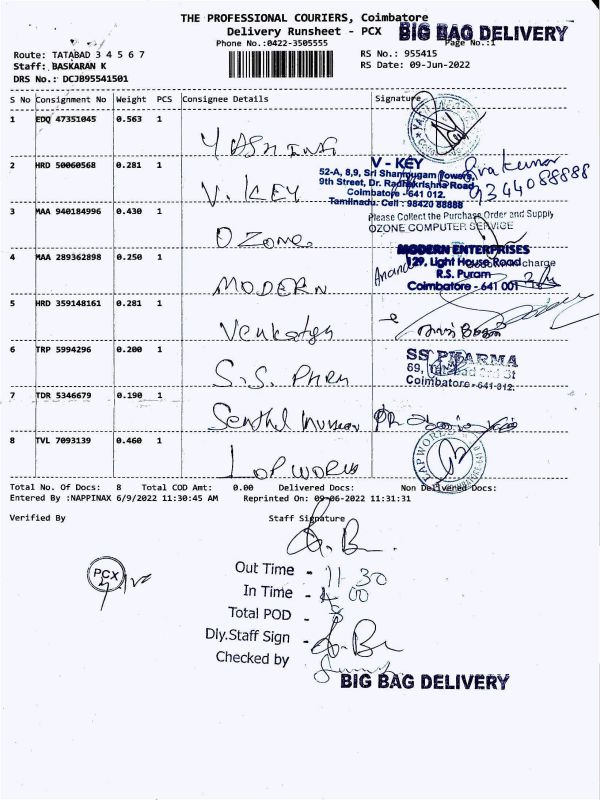 THE PROFESSIONAL COURIERS, Coimbatore
Delivery Runsheet - PCX
BIG BAG DELIVERY
Phone No.:0422-3505555
Page No.:1
Route: TATABAD 3 4 5 6 7
RS No.: 955415
Staff: BASKARAN K
RS Date: 09-Jun-2022
DRS No.: DCJB95541501
S No Consignment No Weight PCS Consignee Details Signature
1 EDQ 47351045 0.563 1
2 HRD 50060568 0.281 1 V. KEY
V - KEY
52-A, 8,9, Sri Shanmugam Towers,
9th Street, Dr. Radhakrishna Road
Coimbatore - 641 012.
Tamilnadu. Cell : 98420 88888
Sivakumar
9344088888
3 MAA 940184996 0.430 1 OZone
Please Collect the Purchase Order and Supply
OZONE COMPUTER SERVICE
4 MAA 289362898 0.250 1 MODERN
MODERN ENTERPRISES
129, Light House Road
R.S. Puram
Coimbatore - 641 001
Anand
5 HRD 359148161 0.281 1
6 TRP 5994296 0.200 1
SS PHARMA
69,
Coimbatore-641 012.
7 TDR 5346679 0.190 1
8 TVL 7093139 0.460 1
Total No. Of Docs: 8 Total COD Amt: 0.00 Delivered Docs: Non Delivered Docs:
Entered By :NAPPINAX 6/9/2022 11:30:45 AM Reprinted On: 09-06-2022 11:31:31
Verified By Staff Signature
PCX
Out Time - 11 30
In Time - 4 00
Total POD -
Dly.Staff Sign -
Checked by
BIG BAG DELIVERY